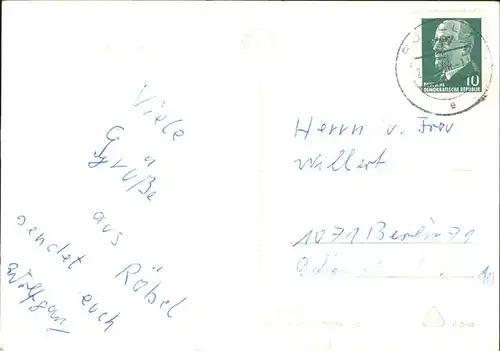 Viele
Grüße
aus
Röbel
sendet euch
Wolfgang
10
DEUTSCHE
DEMOKRATISCHE REPUBLIK
Herrn u. Frau
Willert
1071 Berlin 71